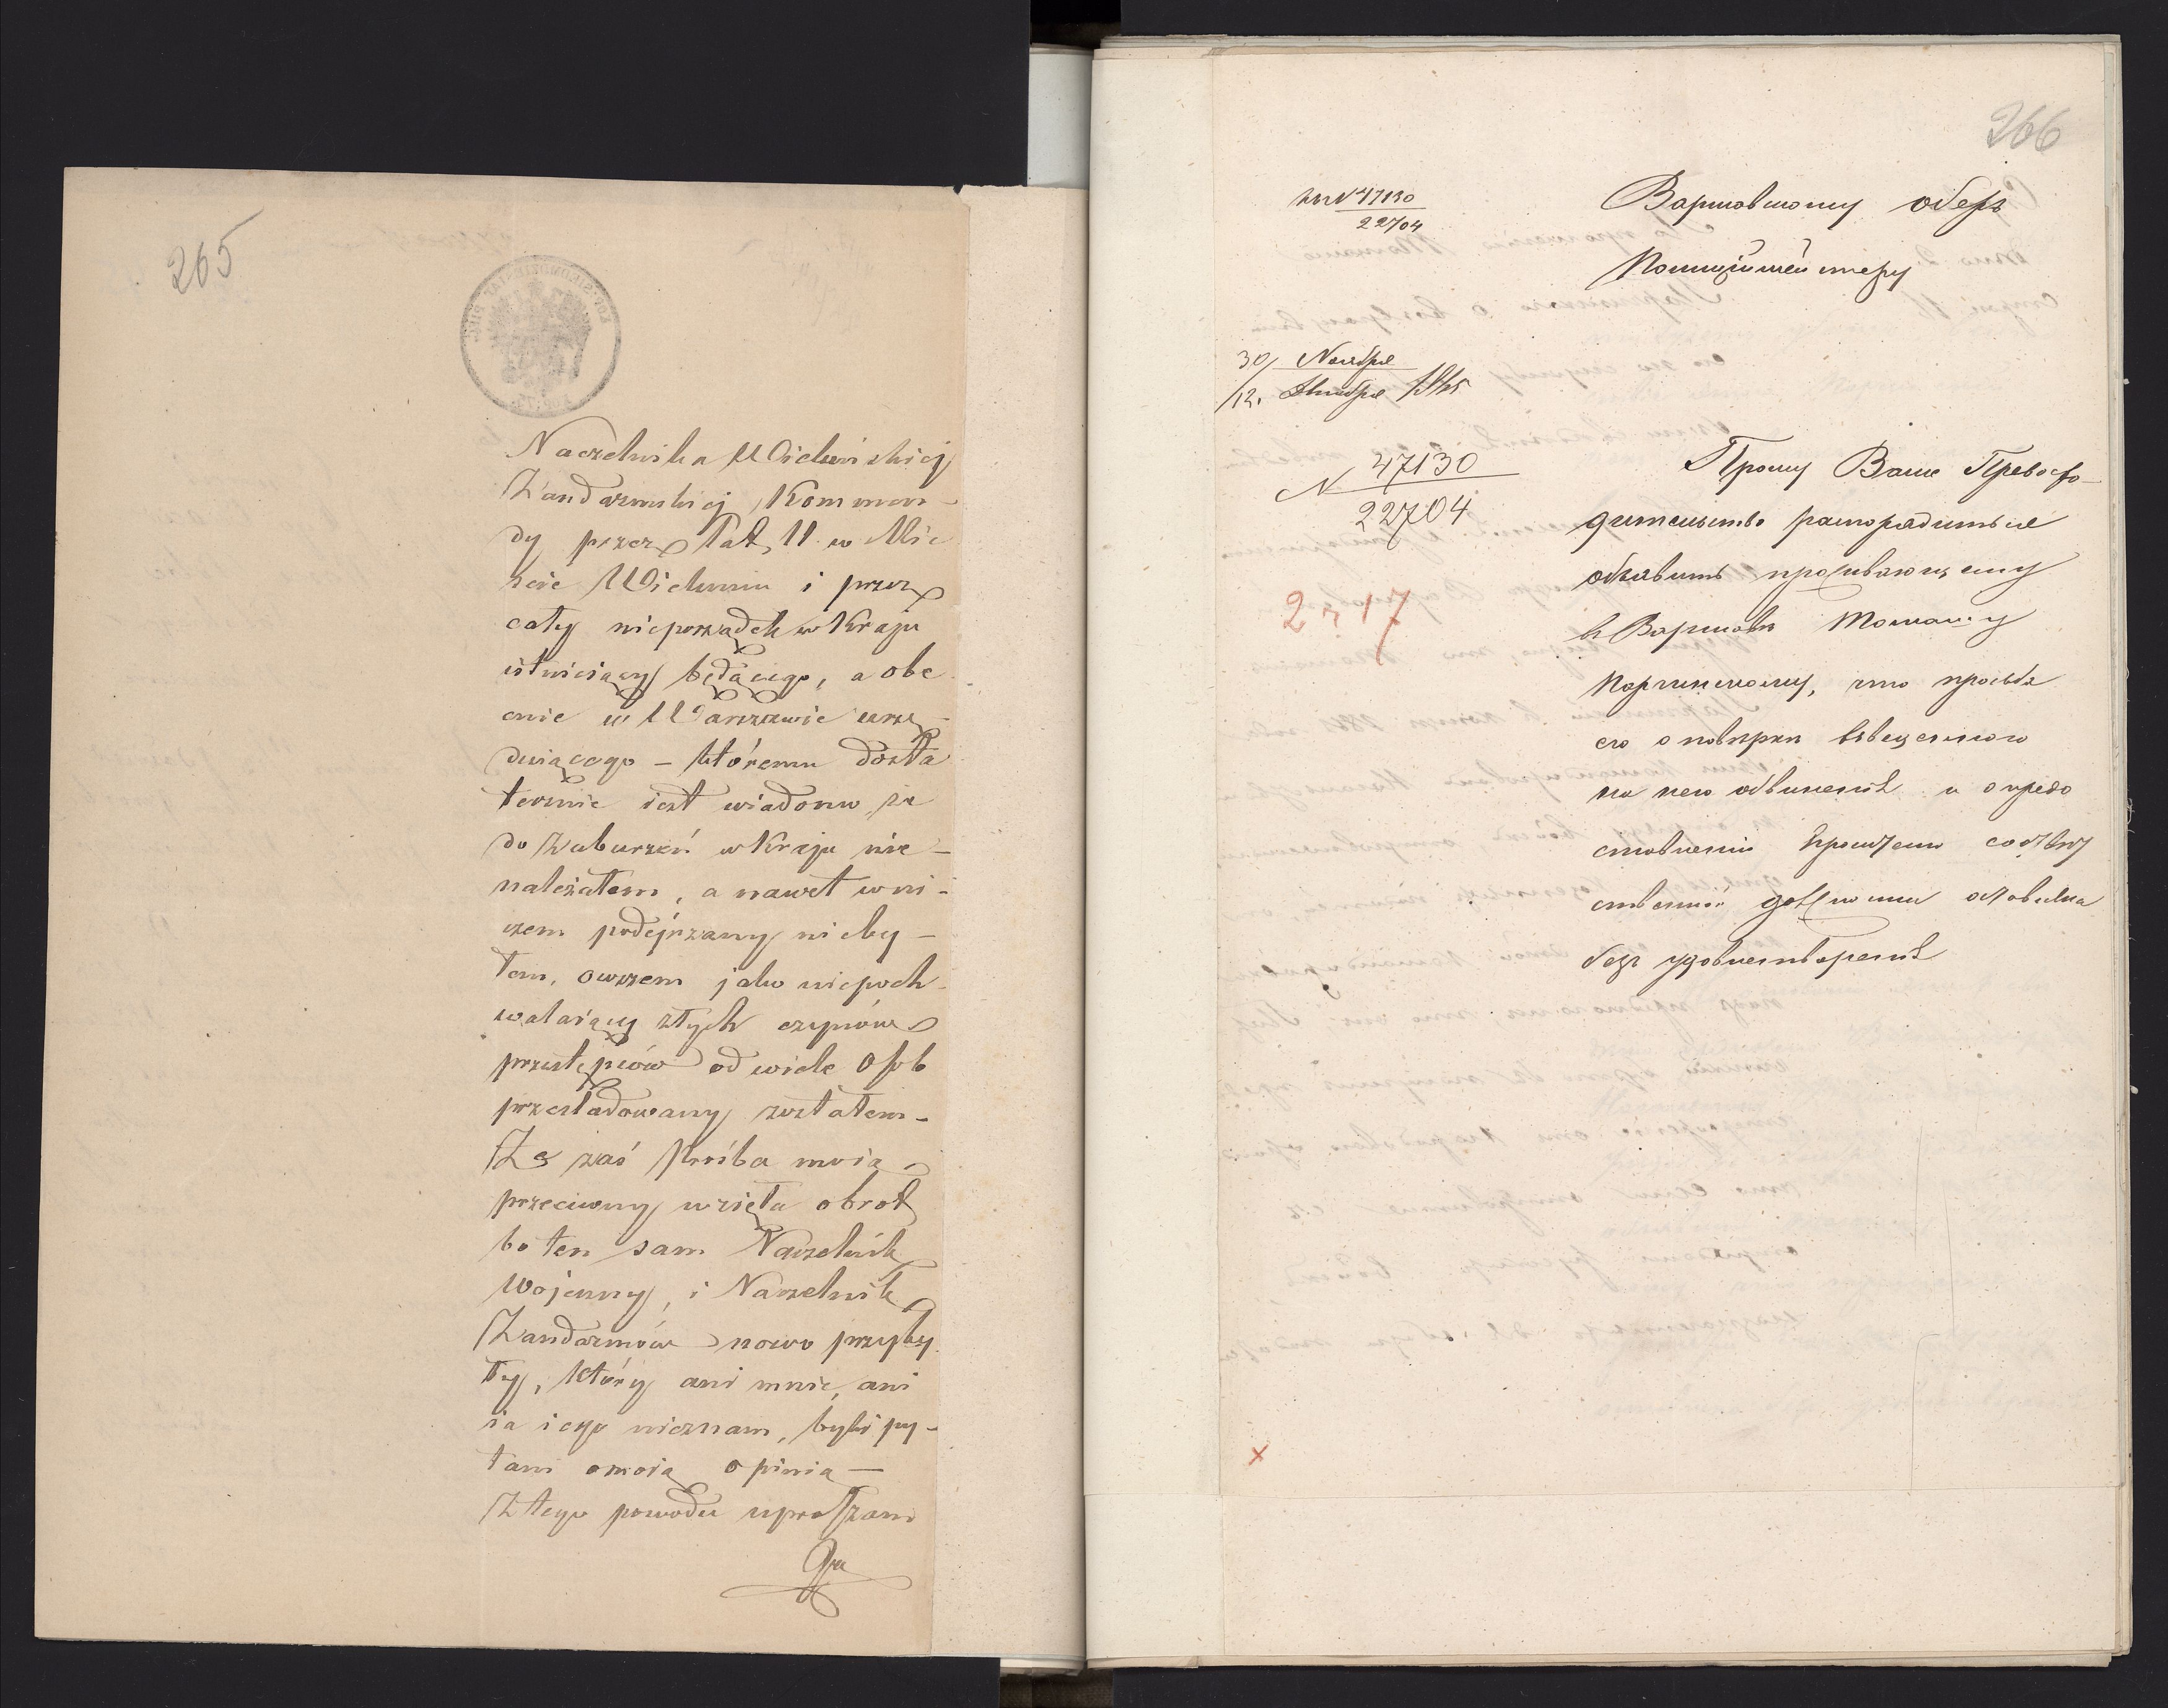 265
Naczelnika Wieluńskiej
Żandarmskiej Komman-
dy przez lat 11. w Mie
ście Wieluniu i przez
cały nieporządek w Kraju
istniejący będącego, a obe
cnie w Warszawie urzę-
dującego – któremu dosta
tecznie jest wiadomo, że
do zaburzeń w Kraju nie-
należałem, a nawet w ni-
czem podejrzany nieby-
łem, owszem jako niepoch-
walający złych czynów
przestępców od wiele osób
prześladowany zostałem-
Że zaś prośba moia
przeciwny wzięła obrot
bo ten sam Naczelnik
Wojenny, i Naczelnik
Żandarmów nowo przyby
ły, który ani mnie, ani
ia iego nieznam, byli py-
tani o moią opinią —
Z tego powodu upraszam
266
47130
22704
Варшавскому обер
Полицiймейстеру
30/ Ноября
/12. Декабря 1865
N 47130
22704
Прошу Ваше Превосхо-
дительство распорядиться
объявить проживающему
в Варшаве Томашу
что просьба
его о поверке взведенного
на него обвинения и о предо
ставлении ему
должности оставлена
без удовлетворения
2 г 17
x